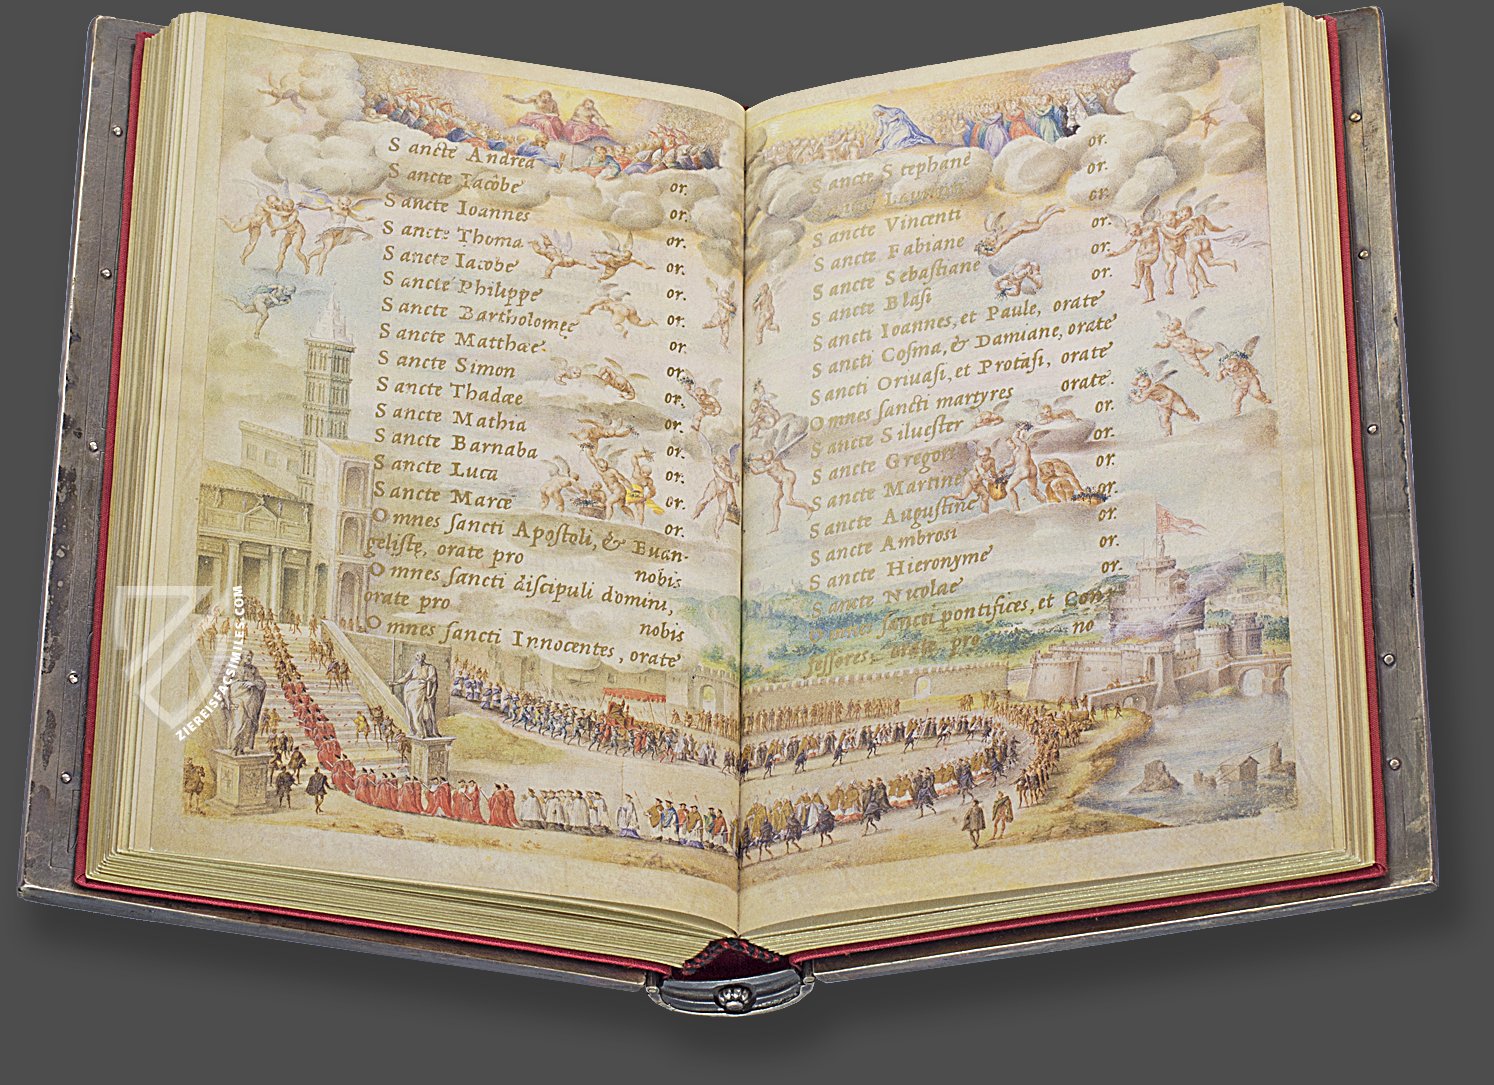 Sancte Andrea or.
Sancte Iacobe or.
Sancte Ioannes or.
Sancte Thoma or.
Sancte Iacobe or.
Sancte Philippe or.
Sancte Bartholomeę or.
Sancte Matthæe or.
Sancte Simon or.
Sancte Thadæe or.
Sancte Mathia or.
Sancte Barnaba or.
Sancte Luca or.
Sancte Marce or.
Omnes sancti Apostoli, & Euan-
gelistę, orate pro nobis
Omnes sancti discipuli domini,
orate pro nobis
Omnes sancti Innocentes, orate
23
Sancte Stephane or.
or.
Sancte Vincenti or.
Sancte Fabiane or.
Sancte Sebastiane or.
Sancte Blasi or.
Sancti Ioannes, et Paule, orate
Sancti Cosma, & Damiane, orate
Sancti Oriuasi, et Protasi, orate
Omnes sancti martyres orate.
Sancte Siluester or.
Sancte Gregori or.
Sancte Martine or.
Sancte Augustine or.
Sancte Ambrosi or.
Sancte Hieronyme or.
Sancte Nicolae or.
Omnes sancti pontifices, et Con
fessores, orate pro no
ZIEREIS FACSIMILES.COM